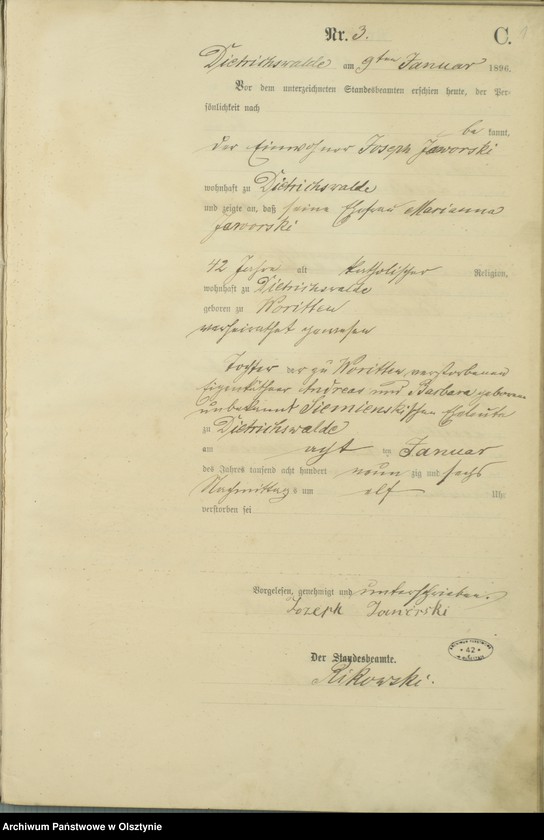 Nr. 3.
C.
Dietrichswalde am 9ten Januar 1896.
Vor dem unterzeichneten Standesbeamten erschien heute, der Per-
sönlichkeit nach
be kannt,
der Einwohner Joseph Jaworski
wohnhaft zu Dietrichswalde
und zeigte an, daß seine Ehefrau Marianna
Jaworski
42 Jahre alt katholischer Religion,
wohnhaft zu Dietrichswalde
geboren zu Woritten
verheirathet gewesen
Tochter der zu Woritten verstorbenen
Eigenthümer Andreas und Barbara geborene
unbekannt Siemienskischen Eheleute
zu Dietrichswalde
am acht ten Januar
des Jahres tausend acht hundert neun zig und sechs
Nachmittags um elf Uhr
verstorben sei
Vorgelesen, genehmigt und unterschrieben.
Jozeph Jaworski
Der Standesbeamte.
Rikowski.
ARCHIWUM PAŃSTWOWE
* 42 *
W OLSZTYNIE
Archiwum Państwowe w Olsztynie